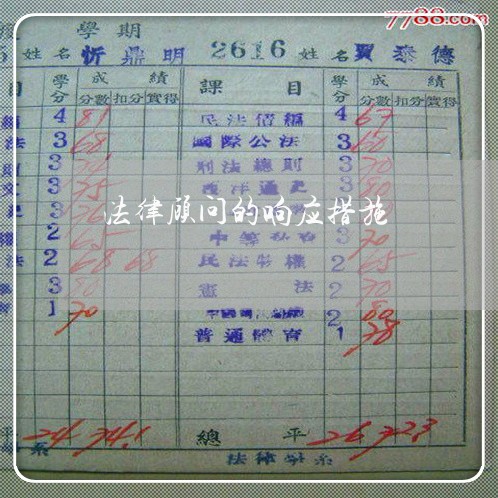 7788.com
學期
5 姓名 忻鼎明 2616 姓名 賈泰德
目 學分 成績 課目 學分 成績
分數 扣分 實得 分數 扣分 實得
4 81 民法債編 4 67
法 3 68 國際公法 3 60
3 刑法總則 3 70
3 75 西洋通史 3 80
2 3
法律顾问的响应措施
權 2 65 3 70
法 2 68 68 民法物權 2 65
3 80 憲法 2 70
1 70 2 80
普通體育 1 78
平 24 74.1 總平 26 72.3
系 法律學系